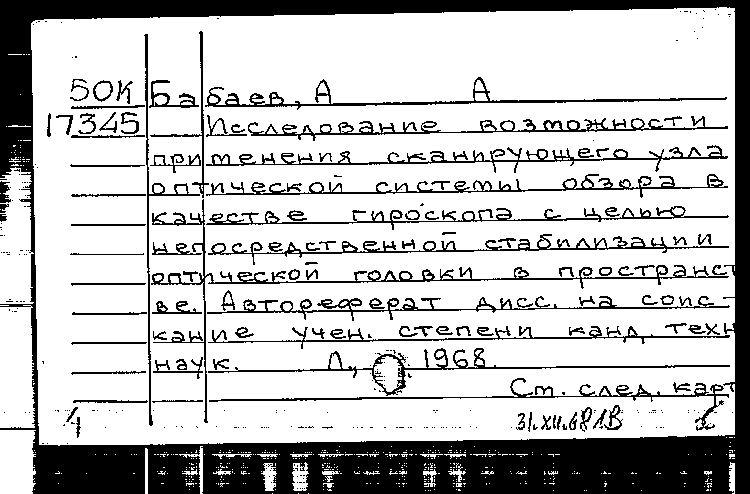 50К Бабаев, А А
17345 Исследование возможности
применения сканирующего узла
оптической системы обзора в
качестве гироскопа с целью
непосредственной стабилизации
оптической головки в пространст
ве. Автореферат дисс. на соис-
кание учен. степени канд. техн
наук. Л., 1968.
См. след. карт
31.XII.68